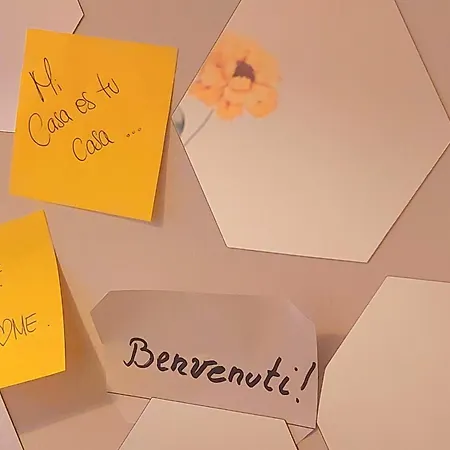 Mi
Casa es tu
Casa ...
Benvenuti!